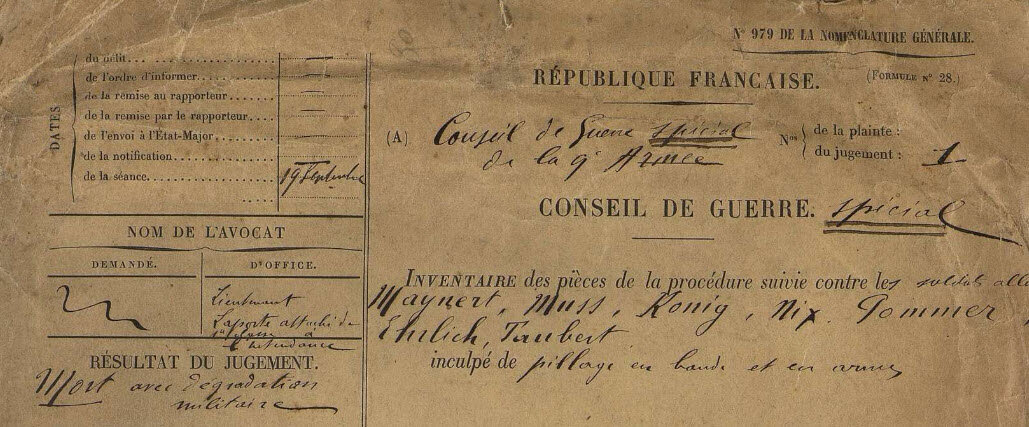 N° 979 DE LA NOMENCLATURE GÉNÉRALE.
RÉPUBLIQUE FRANÇAISE.
(FORMULE N° 28.)
DATES
du délit
de l'ordre d'informer
de la remise au rapporteur
de la remise par le rapporteur
de l'envoi à l'État-Major
de la notification
de la séance. 19 Septembre
(A) Conseil de Guerre spécial
de la 9e Armée
Nos de la plainte :
du jugement : 1
CONSEIL DE GUERRE. spécial
NOM DE L'AVOCAT
DEMANDÉ.
D'OFFICE.
Lieutenant
Laporte attaché de
1e classe à
l'Intendance
RÉSULTAT DU JUGEMENT.
Mort avec dégradation
militaire
INVENTAIRE des pièces de la procédure suivie contre les soldats alle
Maynert, Muss, Konig, Nix Pommer
Ehrlich, Taubert
inculpé de pillage en bande et en armes